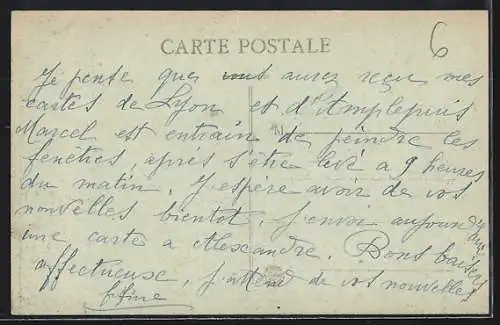 6
CARTE POSTALE
Je pense que vous aurez reçu mes
cartes de Lyon et d'Amplepuis
Marcel est entrain de peindre les
fenêtres, après s'être levé à 9 heures
du matin, J'espère avoir de vos
nouvelles bientôt, j'envoi aujourd'hui
une carte a Alexandre. Bons baisers
affectueuse, j'attend de vos nouvelles